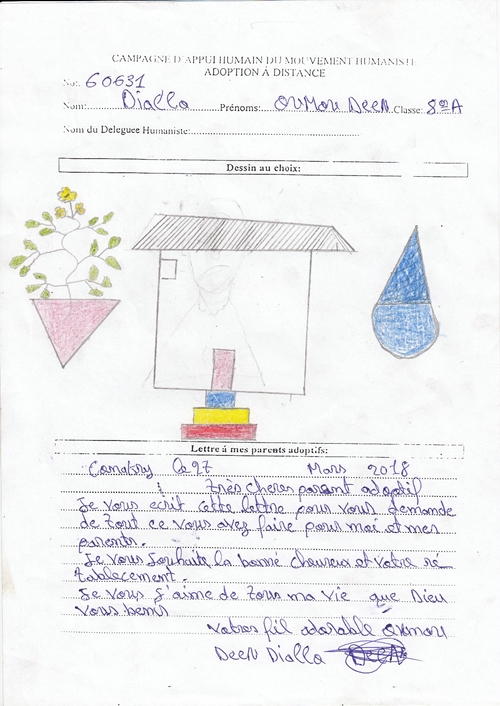 CAMPAGNE D'APPUI HUMAIN DU MOUVEMENT HUMANISTE
ADOPTION À DISTANCE
No: 60631
Nom: Diallo Prénoms: OUMOU DEEN Classe: 8e A
Nom du Deleguee Humaniste:
Dessin au choix:
Lettre à mes parents adoptifs:
Conakry Le 27 Mars 2018
Très cheres parant adoptif
Je vous ecrit cette lettre pour vous demande
de tout ce vous avez faire pour moi et mes
parents.
Je vous souhaite la bonné et votre ré
tablecement.
Se vous j'aime de tous ma vie que Dieu
vous benis
votres fil adorable oumou
DEEN Diallo DEEN